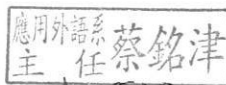 應用外語系
主任蔡銘津